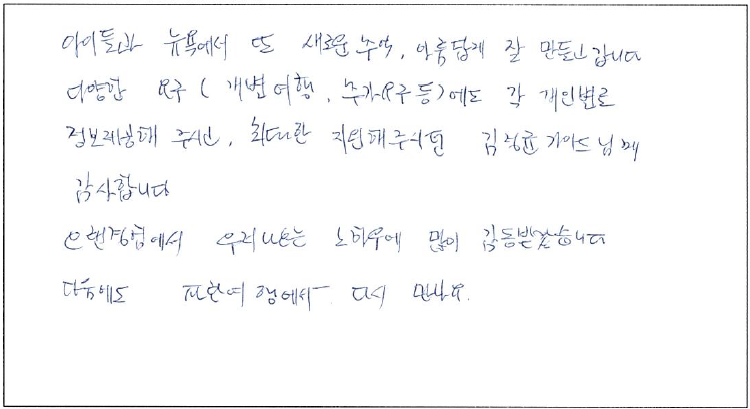 아이들과 뉴욕에서 또 새로운 추억, 아름답게 잘 만들고 갑니다
다양한 요구( 개별여행, 추가요구 등)에도 각 개인별로
정보제공해 주시고, 최대한 지원해주시던 가이드님께
감사합니다
오랜경험에서 우러나오는 노하우에 많이 감동받았습니다
다음에도 여행에서 다시 만나요.